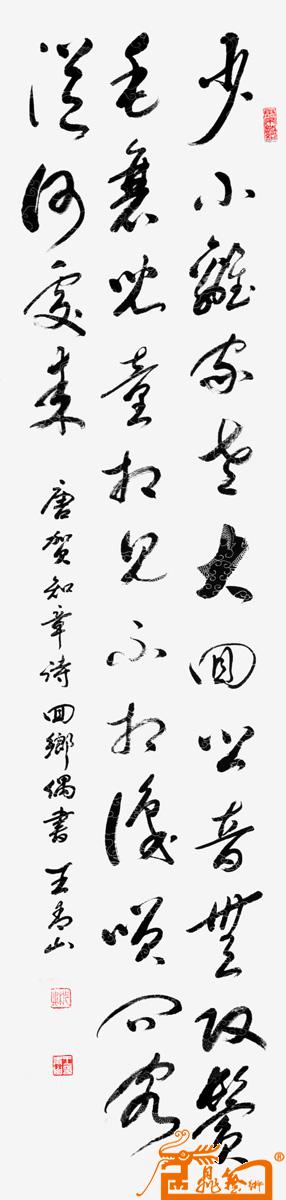 少小離家老大回鄉音無改鬢
毛衰兒童相見不相識笑問客
從何處來
唐賀知章詩回鄉偶書王山